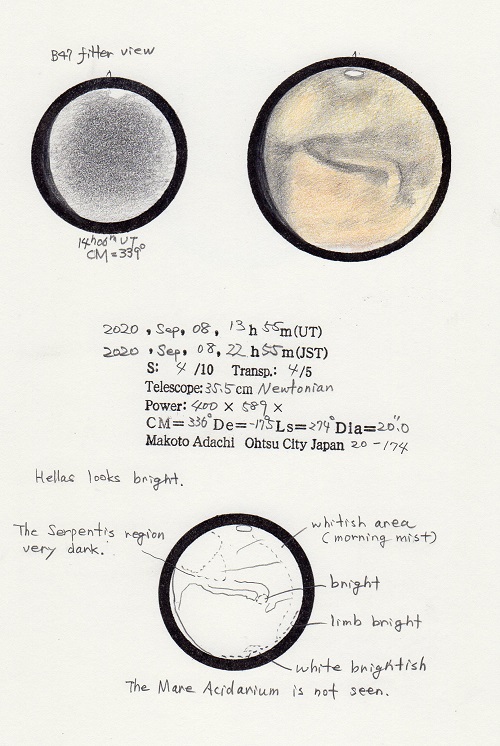 B47 filter view
14h06m UT
CM=339°
2020 , Sep, 08, 13 h 55m(UT)
2020 , Sep, 08, 22 h 55m(JST)
S: 4 /10 Transp.: 4/5
Telescope:35.5cm Newtonian
Power: 400 × 589 ×
CM= 336° De= -17.5 Ls= 274° Dia= 20".0
Makoto Adachi Ohtsu City Japan 20-174
Hellas looks bright.
The Serpentis region
very dark.
whitish area
(morning mist)
bright
limb bright
white brightish
The Mare Acidarium is not seen.